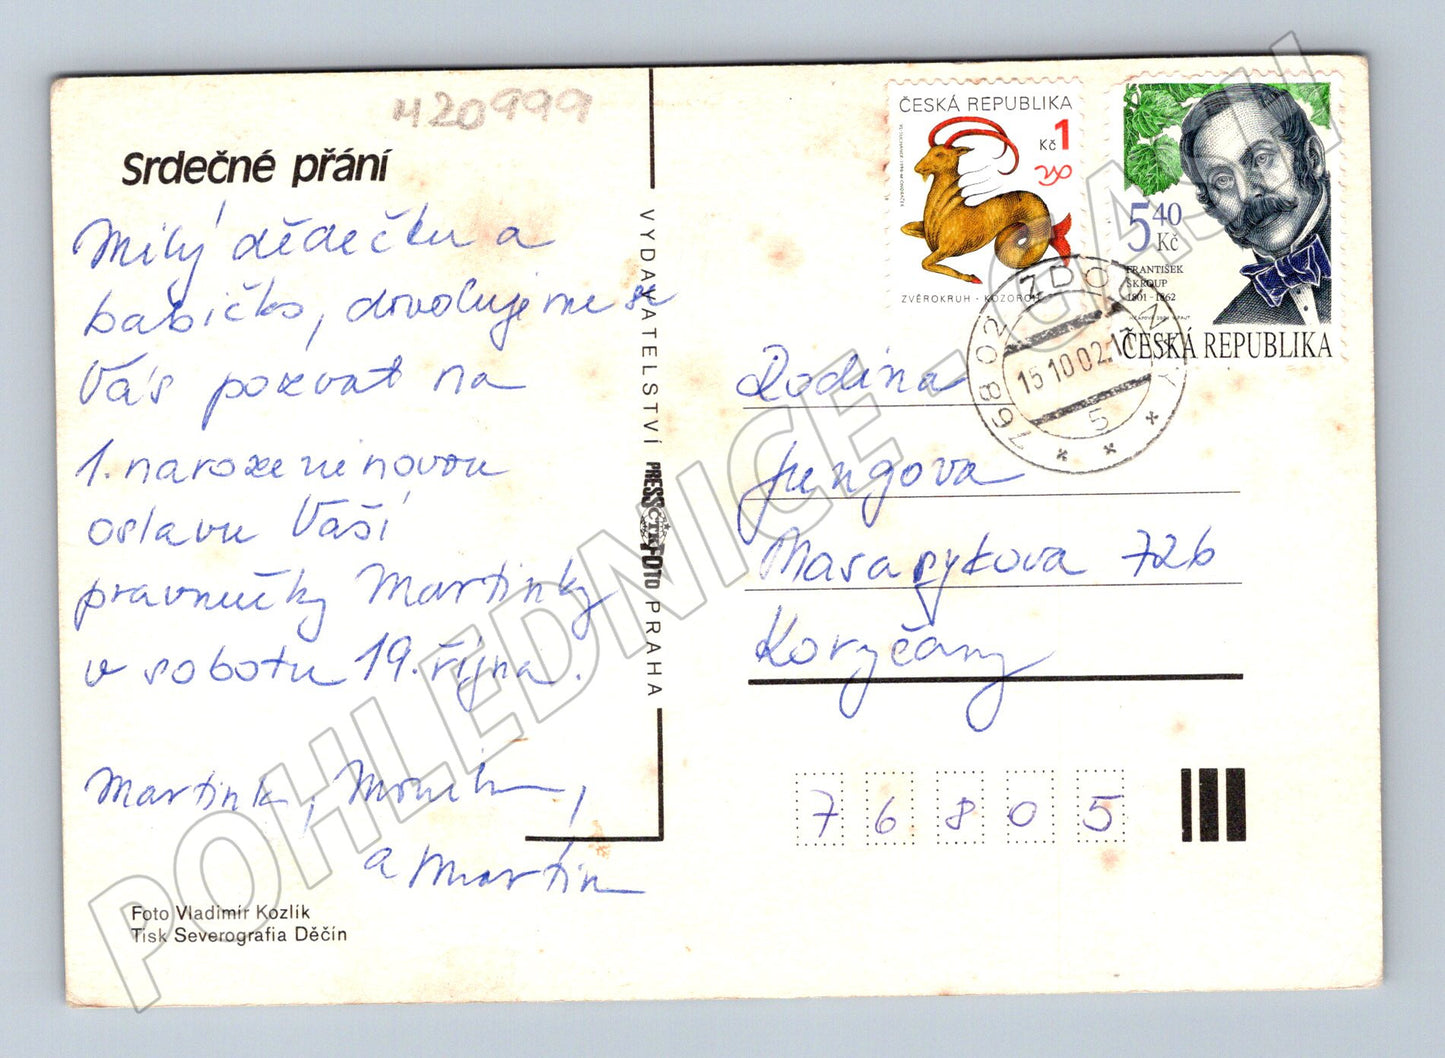 420999
Srdečné přání
Milý dědečku a
babičko, dovolujeme si
Vás pozvat na
1. narozeninovou
oslavu Vaší
pravnučky Martinky
v sobotu 19. října.
Martink, Monika,
a Martin
Foto Vladimír Kozlík
Tisk Severografia Děčín
VYDAVATELSTVÍ PRESSFOTO PRAHA
ČTK
ČESKÁ REPUBLIKA
Kč 1
ZVĚROKRUH - KOZOROH
5,40
Kč
FRANTIŠEK
ŠKROUP
1801 - 1862
ČESKÁ REPUBLIKA
768 02 ZDOUNKY
15.10.02.17
5
Rodina
Jungova
Masarykova 726
Koryčany
76805
POHLEDNICE - GASU